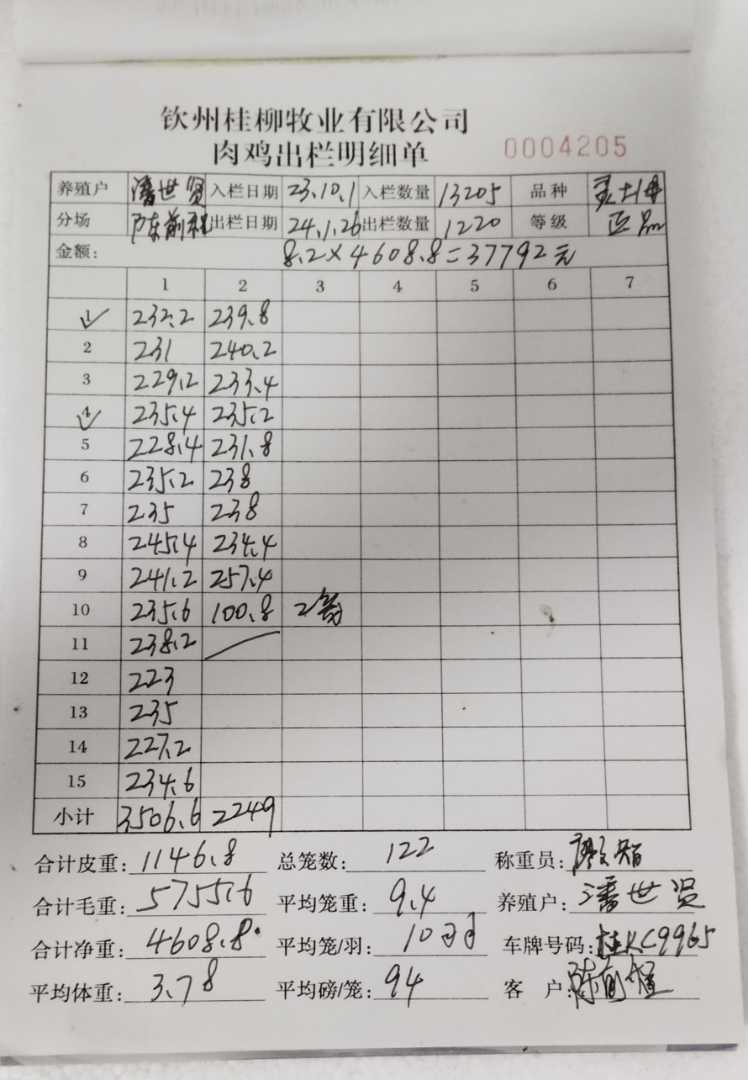 钦州桂柳牧业有限公司
肉鸡出栏明细单 0004205
养殖户 潘世贤 入栏日期 23.10.1 入栏数量 13205 品种
分场 陈前程 出栏日期 24.1.26 出栏数量 1220 等级 正品
金额: 8.2×4608.8=37792元
1 2 3 4 5 6 7
1 232.2 239.8
2 231 240.2
3 229.2 233.4
4 235.4 235.2
5 228.4 231.8
6 235.2 238
7 235 238
8 245.4 234.4
9 241.2 257.4
10 235.6 100.8 2筐
11 238.2
12 223
13 235
14 227.2
15 234.6
小计 3506.6 2249
合计皮重: 1146.8 总笼数: 122 称重员:
合计毛重: 5755.6 平均笼重: 9.4 养殖户: 潘世贤
合计净重: 4608.8 平均笼/羽: 10羽 车牌号码: 桂KC9965
平均体重: 3.78 平均磅/笼: 94 客户: 陈前程